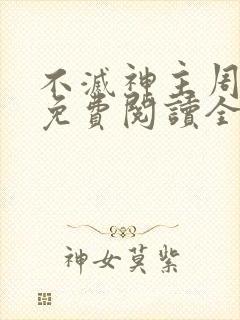 不滅神主周
免費閱讀全
神女莫紫